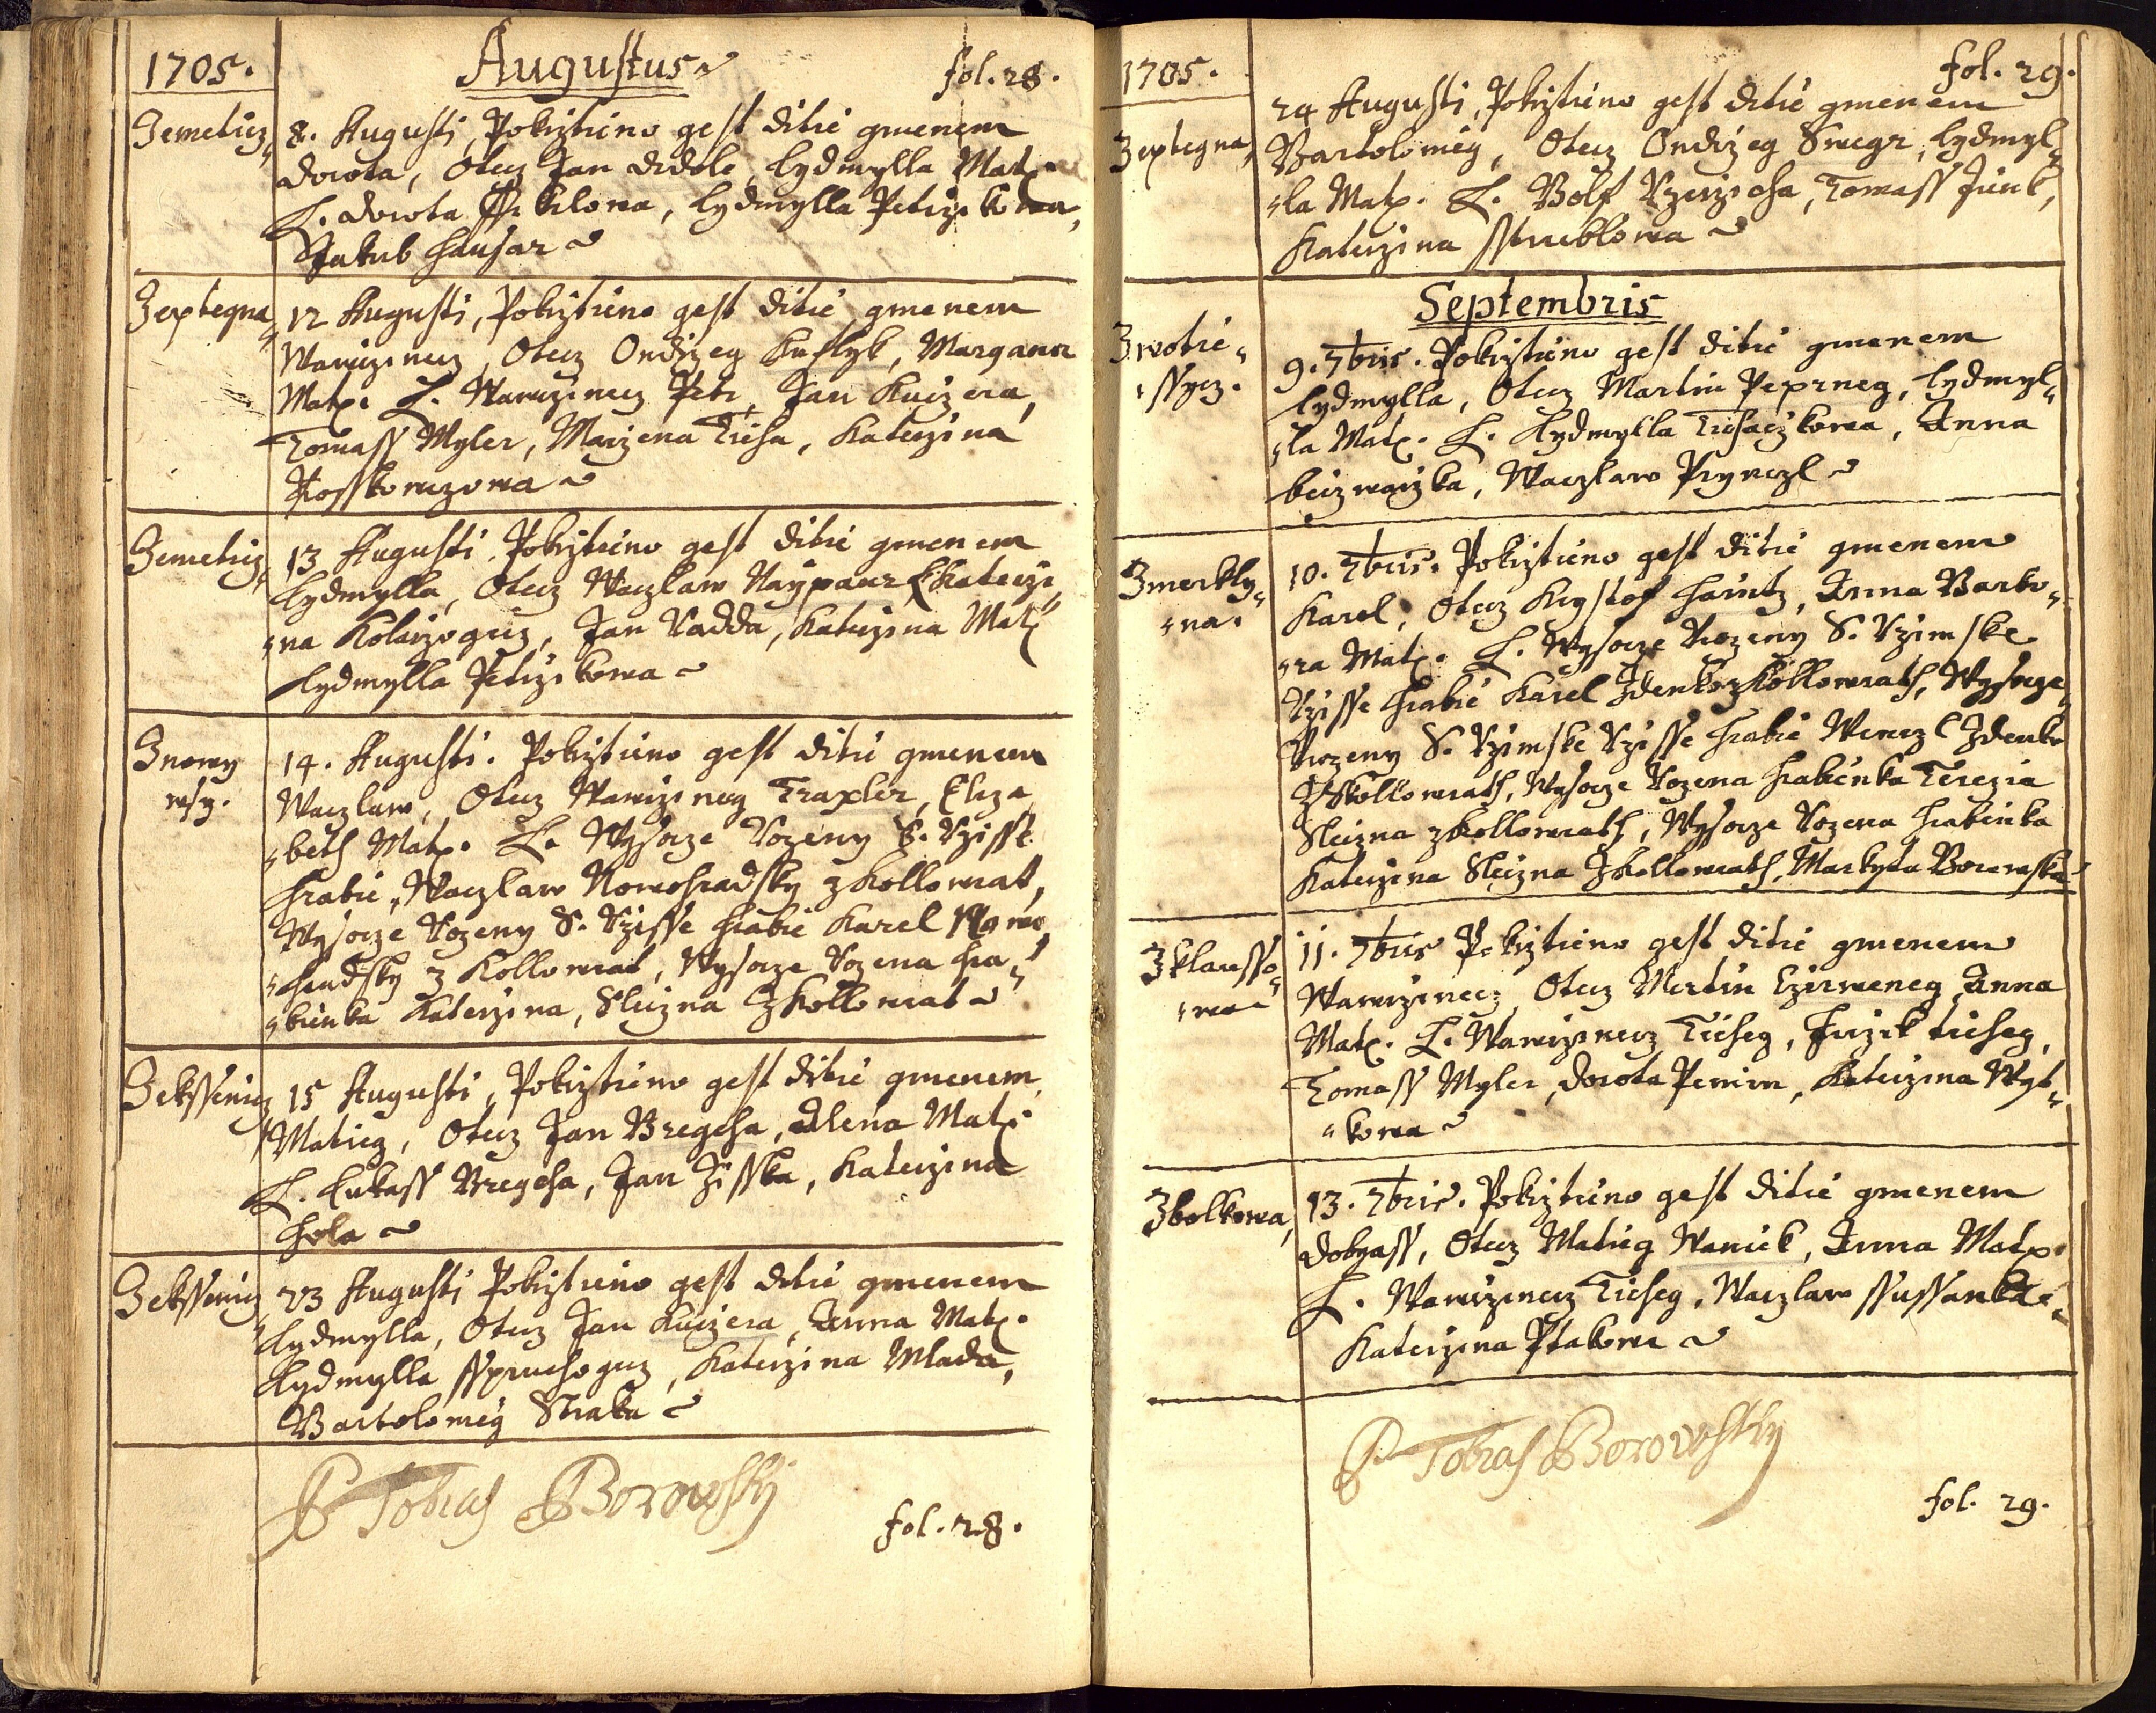 1705.
Augustus
fol. 28.
Zemeticz
8. Augusti, Pokrztieno gest ditie gmenem
Dorota, Otecz Jan Didole, Lydmylla Mat:
L. Dorota, Lydmylla Petrzikowa,
Jakub Hausar
Zeptegna
12 Augusti, Pokrztieno gest ditie gmenem
Wawrzinecz, Otecz Ondrzeg Kuklyk, Margana
Mat: L. Wawrzinecz Petr, Jan Kuczera,
Tomass Myler, Marzena Ticha, Katerzina
Zemeticz
13 Augusti, Pokrztieno gest ditie gmenem
Lydmylla, Otecz Waczlaw Naypaur, Katerzi„
„na Kolarzogicz, Jan Vadda, Katerzina Mat:
Lydmylla Petrzikowa
Znowy
wsy.
14. Augusti. Pokrztieno gest ditie gmenem
Waczlaw, Otecz Wawrzineg Traxler, Eliza„
„beth Mat: L. Wysocze Vrozeny S. Rzisse
Hrabie, Waczlaw Nowohradsky z Kollowrat,
Wysocze Vrozeny S. Rzisse Hrabie Karel Nowo„
„hradsky z Kollowrat, Wysocze Vrozena Hra„
„bienka Katerzina, Sleczna z Kollowrat
Zekssicz
15 Augusti, Pokrztieno gest ditie gmenem
Matieg, Otecz Jan Bregcha, Alena Mat:
L. Lukass Bregcha, Jan Zisska, Katerzina
Hola
23 Augusti Pokrztieno gest ditie gmenem
Lydmylla, Otecz Jan Kuczera, Anna Mat:
Lydmylla, Katerzina Mlada,
Bartolomieg Straka
P Tobias Borowsky
fol. 28.
1705.
fol. 29.
Zeptegna,
24 Augusti, Pokrztieno gest ditie gmenem
Bartolomieg, Otecz Ondrzeg Swegr, Lydmyl„
„la Mat: L. Wolf Rzerzicha, Tomass Junk,
Katerzina Sstrueblowa
Septembris
Zwotie„
„ssycz.
9. 7bris. Pokrztieno gest ditie gmenem
Lydmylla, Otecz Martin Peprneg, Lydmyl„
„la Mat: L. Lydmylla Tichaczkowa, Anna
Waczlaw Prynczl
Zmerkly„
„na.
10. 7bris. Pokrztieno gest ditie gmenem
Karel, Otecz Krystof Haintz, Anna Barbo„
„ra Mat: L. Wysocze Vrozeny S. Rzimske
Rzisse Hrabie Karel Zdenko z Kollowrath, Wysocze
Vrozeny S. Rzimske Rzisse Hrabie Wenczl Zdenko
Z Kollowrath, Wysocze Vrozena Hrabienka Terezia
Sleczna z Kollowrath, Wysocze Vrozena Hrabienka
Katerzina Sleczna Z Kollowrath, Markyta Borowska
Zklausso„
„wa
11. 7bris Pokrztieno gest ditie gmenem
Wawrzinecz Otecz Martin Czerweneg Anna
Mat: L. Wawrzinecz Ticheg, Jirzik ticheg,
Tomass Myler, Dorota, Katerzina Wyt„
„kowa
Zbolkowa,
13. 7bris. Pokrztieno gest ditie gmenem
Dobyass, Otecz Matieg Waniek, Anna Mat:
L. Wawrzinecz Ticheg, Waczlaw Ssussanka
Katerzina Ptakowa
P Tobias Borowsky
fol. 29.